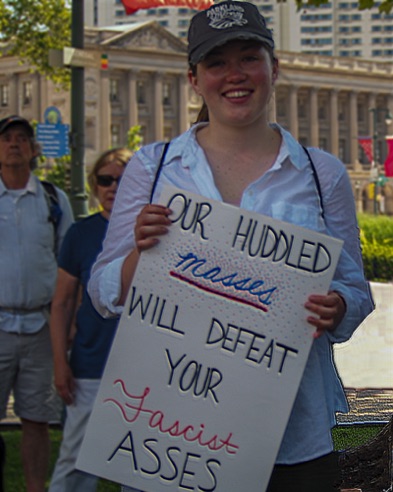 OUR HUDDLED
masses
WILL DEFEAT
YOUR
Fascist
ASSES